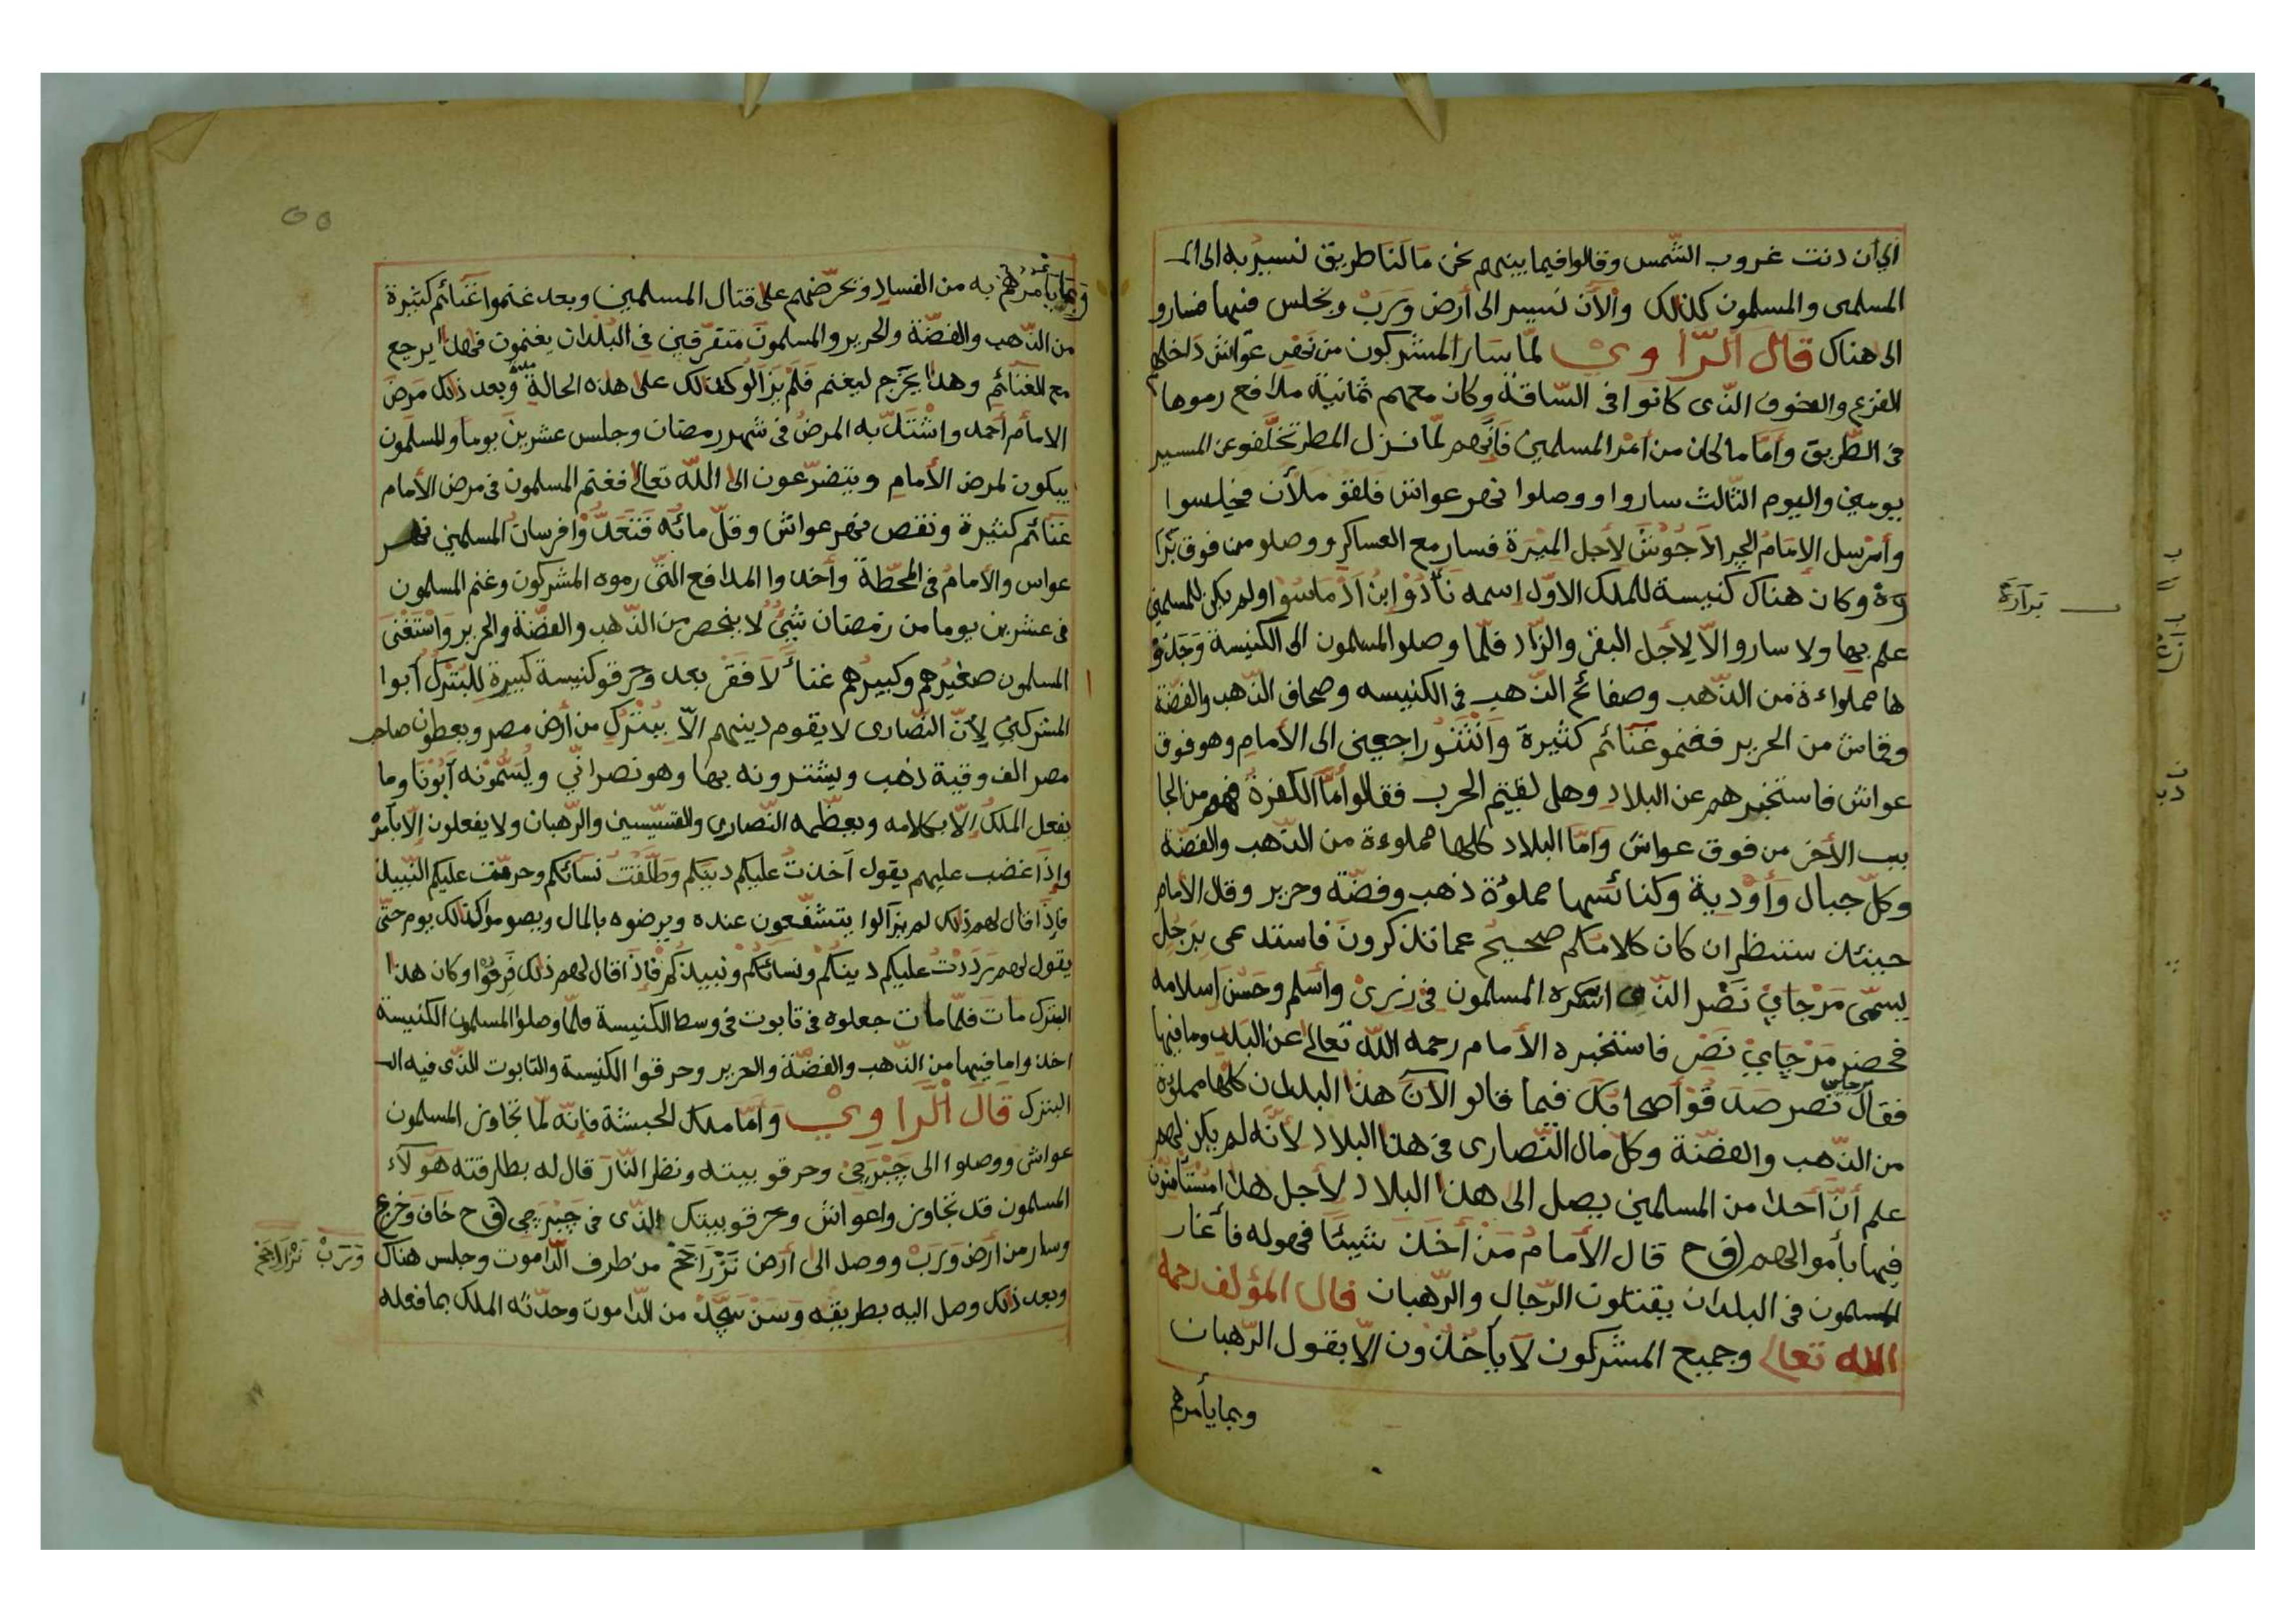 الي أن دنت غروب الشّمس وقالوا فيما بينهم نحن مَا لَنا طريق نسير به الى الـ
المسلمى والمسلمون كذلك وَالأن نسير الى أرض وَرَبْ ونجلس فيها فسارو
الى هناك قَالَ الرّاويْ لمّا سَارَ المشركون من نهْرِ عَوَاش دَاخلهم
الفزع والخوف الذّى كانوا فى السّاقة وكان معهم ثمانية مدافع رموها
فى الطّريق وأمّا ما كان من أمْر المسلمين فإنّهم لمّا نزل المطر تخلّفو عن المسير
يومين واليوم الثّالث ساروا ووصلوا نهر عواش فلقو ملأن فجلسوا
وأرسل الإمَامُ الجرادَ جُوشَ لأجل الميْرة فسار مع العساكر ووصلو من فوق بَرَا
رَة وكان هناك كنيسة للملك الاوّل إسمه نَاذُوْ ابنُ اَدْمَاسُوا ولم يكن للمسلمين
علم بها ولا سارو الاّ لِأجل البقر والزّاد فلمّا وصلو المسلمون الى الكنيسة وَجَدُوْ
ها مملواءة من الذّهب وصفائح الذّهب فى الكنيسه وصحاف الذّهب والفضّة
وقماش من الحرير فغنموغنائم كثيرة وَانْثَنَوْ راجعين الى الأمام وهو فوق
عواش فاستخبرهم عن البلاد وهل لقيتم الحرب فقالوا أمّا الكفرةُ فهم من الجا
نب الأخر من فوق عواش وَامّا البلاد كلها مملوءة من الذّهب والفضّة
وكلّ جبال وأوْدية وكنائسها مملوْة ذهب وفضّة وحرير وقال الأمام
حينئذ سننظر ان كان كلامكم صحيح عما تذكرون فاستدعى بِرَجُل
يسمّى مَرْجَايْ نَصْر الذّى اسَره المسلمون فى زِرىْ وأسلم وحَسُن إسلامه
فحضر مَرْجَايْ نَصْر فاستخبره الأمام رحمه اللّه تعالى عن البلد وما فيها
فقال مرجاى نصر صَدقُوْا أصحابُك فيما قالو الآنَ هذا البلدان كلّها مملوْة
من الذّهب والفضّة وكلّ مال النّصارى فى هذا البلاد لأنّه لم يكن لهم
علم أنّ أحدا من المسلمين يصل الى هذا البلاد لأجل هذا امسْتأمنون
فيها بأموالهم (ق ح قال الأمامُ مَنْ أخَذَ شيئًا فهوله فأغار
المسلمون فى البلدان يقتلون الرّجال والرّهبان قال المؤلف رحمه
الله تعالى وجميع المشركون لاَ يأخُذُون الاّ بقول الرّهبان
وبما يأمرهم
بَرَارَة
وَبمَا يَأمُرُهمْ به من الفساد وتحرّضهم على قتال المسلمين وبعد غنموا غَنَائم كثيرة
من الذّهب والفضّة والحرير والمسلمون متفرّقين فى البُلدان يغنمون فهذا يرجع
مع الغنائم وهذا يخرج ليغنم فَلَمْ يَزَالُو كذلك على هذه الحالة وبعد ذلك مَرضَ
الامام أحمد واشْتَدّ به المرضُ فى شهر رمضان وجلس عشرينَ يوما والمسلمون
يبكون لمرض الأمام ويتضرّعون الى اللّه تعالى فغنم المسلمون فى مرض الأمام
غنائم كثيرة ونقص نهر عواش وقلّ مائُه فتعدُّوْا فرسانُ المسلمين نهر
عواس والأمامُ فى المحَطّة وأخذوا المدافع التّى رموه المشركون وغنم المسلمون
فى عشرين يوما من رَمَضان شَيْئُ لا ينحصر من الذّهب والفضّة والحرير وَاسْتَغْنى
المسلمون صغيرهم وكبيرهم غناءً لاَ فَقْرَ بعد وحرقو كنيسة كبيرة لِلْبَتْرَك أبوا
المشركين لِأنّ النّصارى لا يقوم دينهم الاّ بِبَتْرَكِ من أرض مصر ويعطون صاحب
مصر الف وقية ذهب ويشترونه بها وهو نصرانّي ويُسَمُّوْنه أبُوْنَا وما
يفعل الملكُ إلّا بكلامه ويعظّمه النّصارى والقسّيسين والرّهبان ولا يفعلون إلّا بأمْرِه
وإذا غضب عليهم يقول أخذتُ عليكم دينكم وَطلّقتُ نسائكم وحرمّت عليكم النّبيذ
فاذا قال لهم ذلك لم يزالوا يتشفّعون عنده ويرضوه بالمال ويصومؤ كذلك يوم حتّى
يقول لهم رَدَدْتُ عليكم دينكُم ونسائَكُمْ ونبيذكُمْ فإذَا قال لهم ذلك فَرِحُوْا وكان هذا
البترك مَاتَ فلمّا مات جعلوه فى تابوت فى وسط الكنيسة فلمّا وصلوا المسلمون الكنيسة
اخذوا ما فيها من الذّهب والفضّة والحرير وحرقوا الكنيسة والتابوت الذّى فيه الـ
البترك قَالَ الرّاوِيْ وَأمّا ملك الحبشة فإنّه لمّا تجاوز المسلمون
عواش ووصلوا الى جَبْرجى وحرقو بيته ونظر النّارَ قال له بطارقته هَؤلآء
المسلمون قد تجاوزوا عواش وحرقو بيتك الذّى فى جَبْرجى (ق ح خَاف وَخرج
وسار من أرض وَرَبْ ووصل الى أرض تَزْرَاجَحْ من طرف الدّاموت وجلس هناك
وبعد ذلك وصل اليه بطريقه وَسَنْ سَجّدْ من الدّاموت وحدّثه الملك بما فعله
وَرَبْ تَزْرَاجَحْ